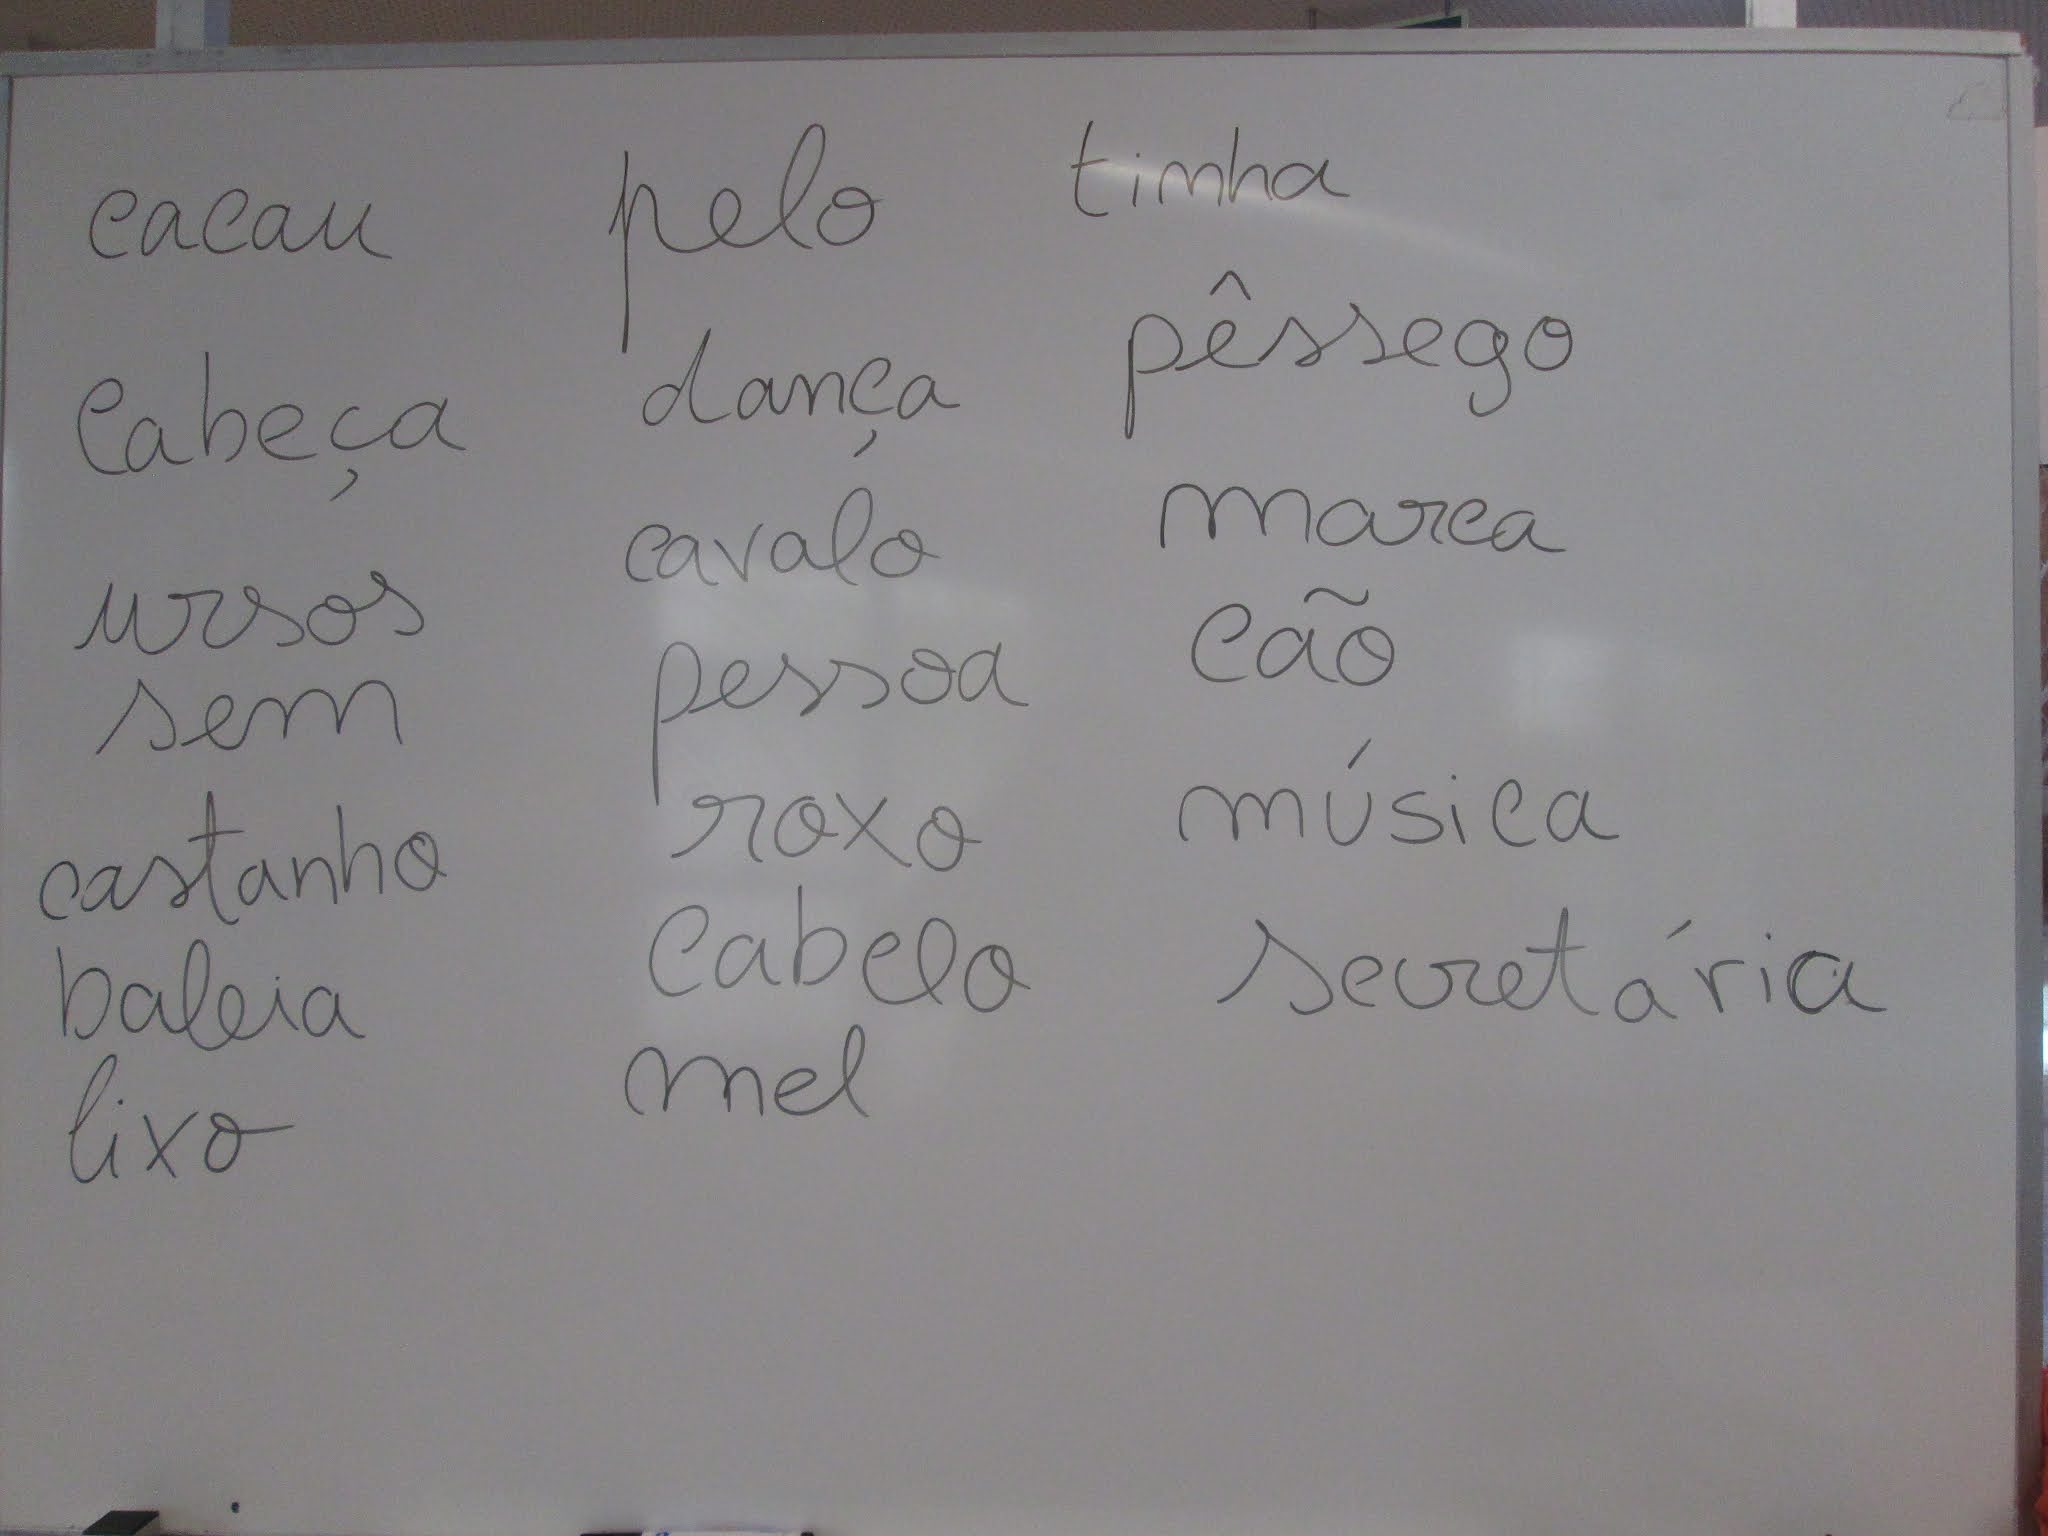 cacau
cabeça
ursos
sem
castanho
baleia
lixo
pelo
dança
cavalo
pessoa
roxo
cabelo
mel
tinha
pêssego
marca
cão
música
secretária